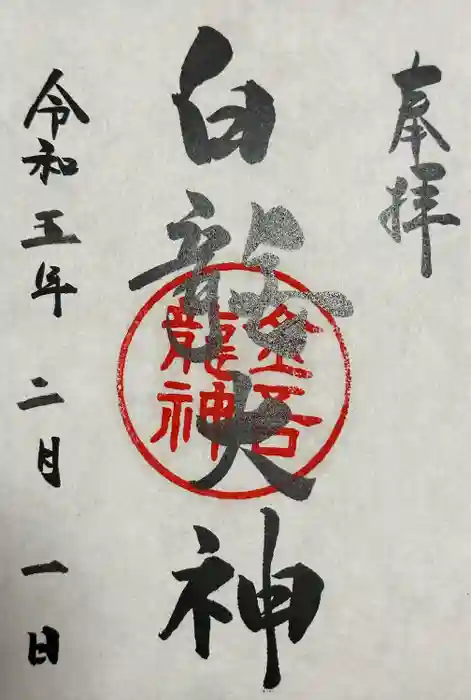 奉拝
白龍大神
龍神
令和五年 二月 一日